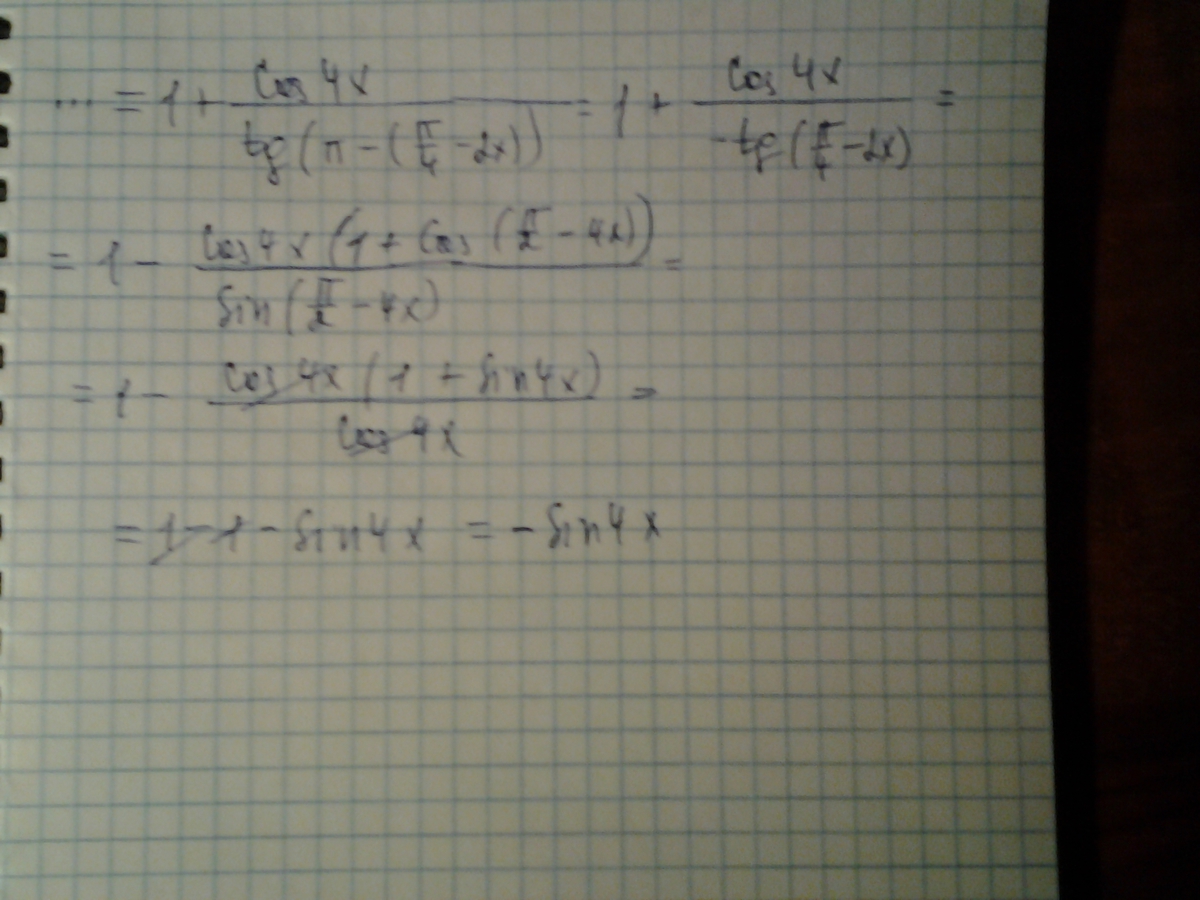 ... = 1 + cos 4x / tg(π - (π/4 - 2x)) = 1 + cos 4x / -tg(π/4 - 2x) =
= 1 - cos 4x (1 + cos (π/2 - 4x)) / sin(π/2 - 4x) =
= 1 - cos 4x (1 + sin 4x) / cos 4x =
= 1 - 1 - sin 4x = - sin 4x